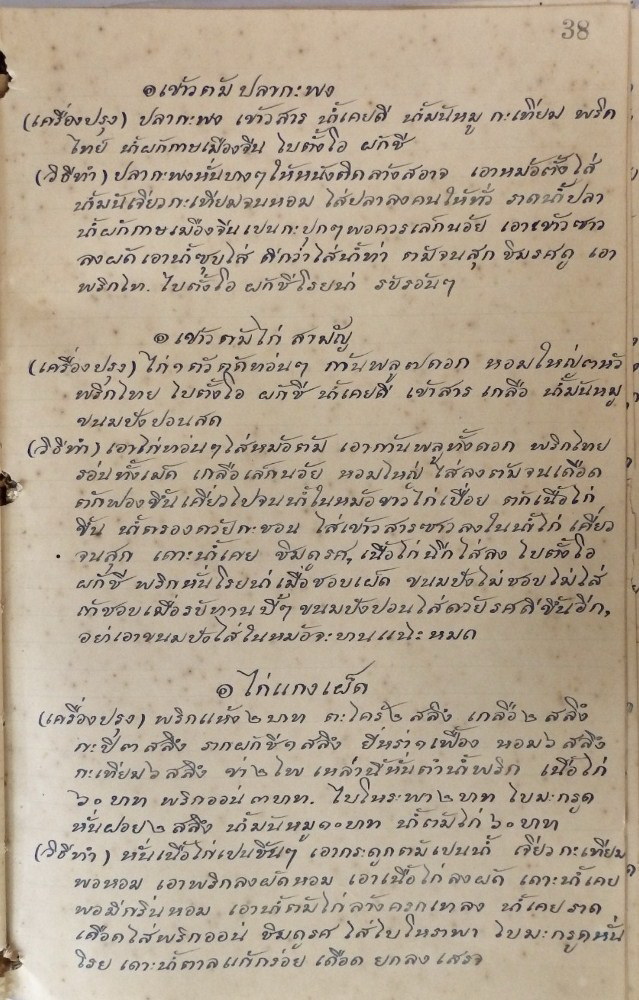 38
๏ เข้าต้ม ปลากะพง
(เครื่องปรุง) ปลากะพง เข้าสาร น้ำเคยดี น้ำมันหมู กะเทียม พริค
ไทย น้ำผักกาษเมืองจีน ใบตั้งโอ ผักชี
(วิธีทำ) ปลากะพงหั่นบางๆ ให้หนังติดล้างสอาจ เอาหม้อตั้งใส่
น้ำมันเจียวกะเทียมจนหอม ใส่ปลาลงคนให้ทั่ว ราดน้ำปลา
น้ำผักกาษเมืองจีนเปนกะปุกๆ พอควรเล็กน้อย เอาเข้าซาว
ลงผัด เอาน้ำซุบใส่ ดีกว่าใส่น้ำท่า ต้มจนสุก ชิมรศดู เอา
พริกไท. ใบตั้งโอ ผักชีโรยน่า รับร้อนๆ
๏ เข้าต้มไก่ สามัญ
(เครื่องปรุง) ไก่ ๑ ตัวตัดท่อนๆ กานพลู ๗ ดอก หอมใหญ่ ๓ หัว
พริกไทย ใบตั้งโอ ผักชี น้ำเคยดี เข้าสาร เกลือ น้ำมันหมู
ขนมปังปอนสด
(วิธีทำ) เอาไก่ท่อนๆ ใส่หม้อต้ม เอากานพลูทั้งดอก พริกไทย
ร่อนทั้งเม็ด เกลือเล็กน้อย หอมใหญ่ ใส่ลงต้มจนเดือด
ตักฟองขึ้นเคี่ยวไปจนน้ำในหม้อขาวไก่เปื่อย ตักเนื้อไก่
ขึ้น น้ำกรองด้วยกะชอน ใส่เข้าสารซาวลงในน้ำไก่ เคี่ยว
จนสุก เดาะน้ำเคย ชิมดูรศ, เนื้อไก่ฉีกใส่ลง ใบตั้งโอ
ผักชี พริกหั่นโรยน่าเมื่อชอบเผ็ด ขนมปังไม่ชอบไม่ใส่
ถ้าชอบเมื่อรับทานบี้ๆ ขนมปังปอนใส่ด้วยรศดีขึ้นอีก,
อย่าเอาขนมปังใส่ในหม้อจะบานแฉะหมด
๏ ไก่แกงเผ็ด
(เครื่องปรุง) พริกแห้ง ๒ บาท ตะไคร้ ๒ สลึง เกลือ ๒ สลึง
กะปิ ๓ สลึง รากผักชี ๑ สลึง ยี่หร่า ๑ เฟื้อง หอม ๖ สลึง
กะเทียม ๖ สลึง ข่า ๒ ไพ เหล่านี้หั่นตำน้ำพริก เนื้อไก่
๖๐ บาท พริกออน ๓ บาท. ใบโหระพา ๒ บาท ใบมะกรูด
หั่นฝอย ๒ สลึง น้ำมันหมู ๑๐ บาท น้ำต้มไก่ ๖๐ บาท
(วิธีทำ) หั่นเนื้อไก่เปนชิ้นๆ เอากระดูกต้มเปนน้ำ เจียวกะเทียม
พอหอม เอาพริกลงผัดหอม เอาเนื้อไก่ลงผัด เดาะน้ำเคย
พอมีกลิ่นหอม เอาน้ำต้มไก่ล้างครกเทลง น้ำเคยราด
เดือดใส่พริกออน ชิมดูรศ ใส่ใบโหรพา ใบมะกรูดหั่น
โรย เดาะน้ำตาลแก้กร่อย เดือด ยกลง เสรจ